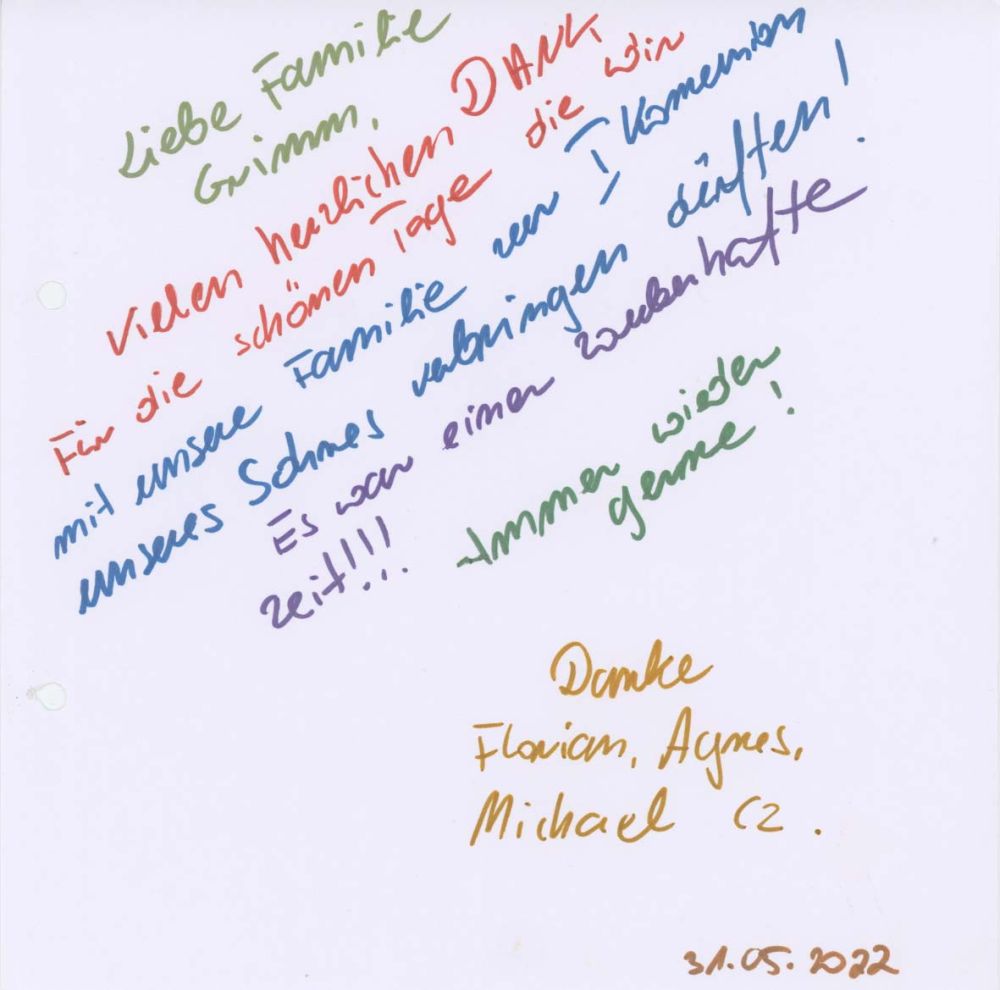 Liebe Familie
Grimm,
vielen herzlichen DANK
Für die schönen Tage die wir
mit unsere Familie zur I Komenion
unseres Sohnes verbringen dürften!
Es war einer zauberhafte
zeit!!! Immer wieder
gerne!
Danke
Florian, Agnes,
Michael CZ.
31.05.2022